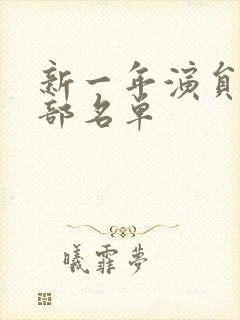 新一年演員
部名單
曦霏夢